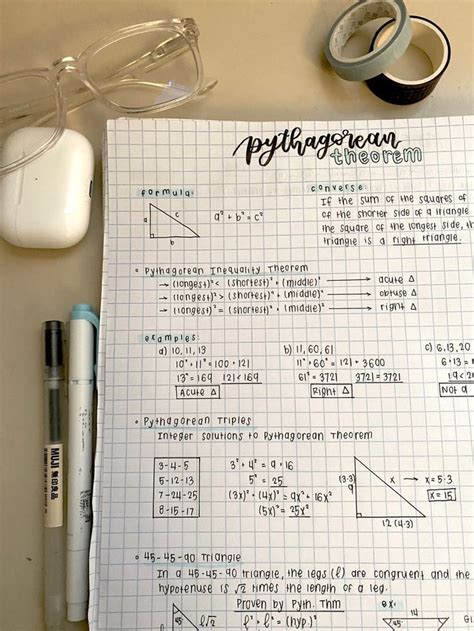 pythagorean
theorem
formula:
a c b
a² + b² = c²
converse
If the sum of the squares of
of the shorter side of a triangle
the square of the longest side, th
triangle is a right triangle.
• Pythagorean Inequality Theorem
→ (longest)² < (shortest)² + (middle)² → acute Δ
→ (longest)² > (shortest)² + (middle)² → obtuse Δ
→ (longest)² = (shortest)² + (middle)² → right Δ
examples:
a) 10, 11, 13
10² + 11² = 100 + 121
13² = 169 121 < 169
Acute Δ
b) 11, 60, 61
11² + 60² = 121 + 3600
61² = 3721 3721 = 3721
Right Δ
c) 6, 13, 20
6 + 13 =
19 < 2
Not a
• Pythagorean Triples
Integer solutions to Pythagorean Theorem
3-4-5
5-12-13
7-24-25
8-15-17
3² + 4² = 9 + 16
5² = 25
(3x)² + (4x)² = 9x² + 16x²
(5x)² = 25x²
(3·3)
9
x → x = 5·3
x = 15
12 (4·3)
• 45-45-90 Triangle
In a 45-45-90 triangle, the legs (ℓ) are congruent and the
hypotenuse is √2 times the length of a leg.
Proven by Pyth. Thm
ℓ² + ℓ² = (hyp.)²
45° ℓ√2
ex:
14
45°
MUJI 無印良品